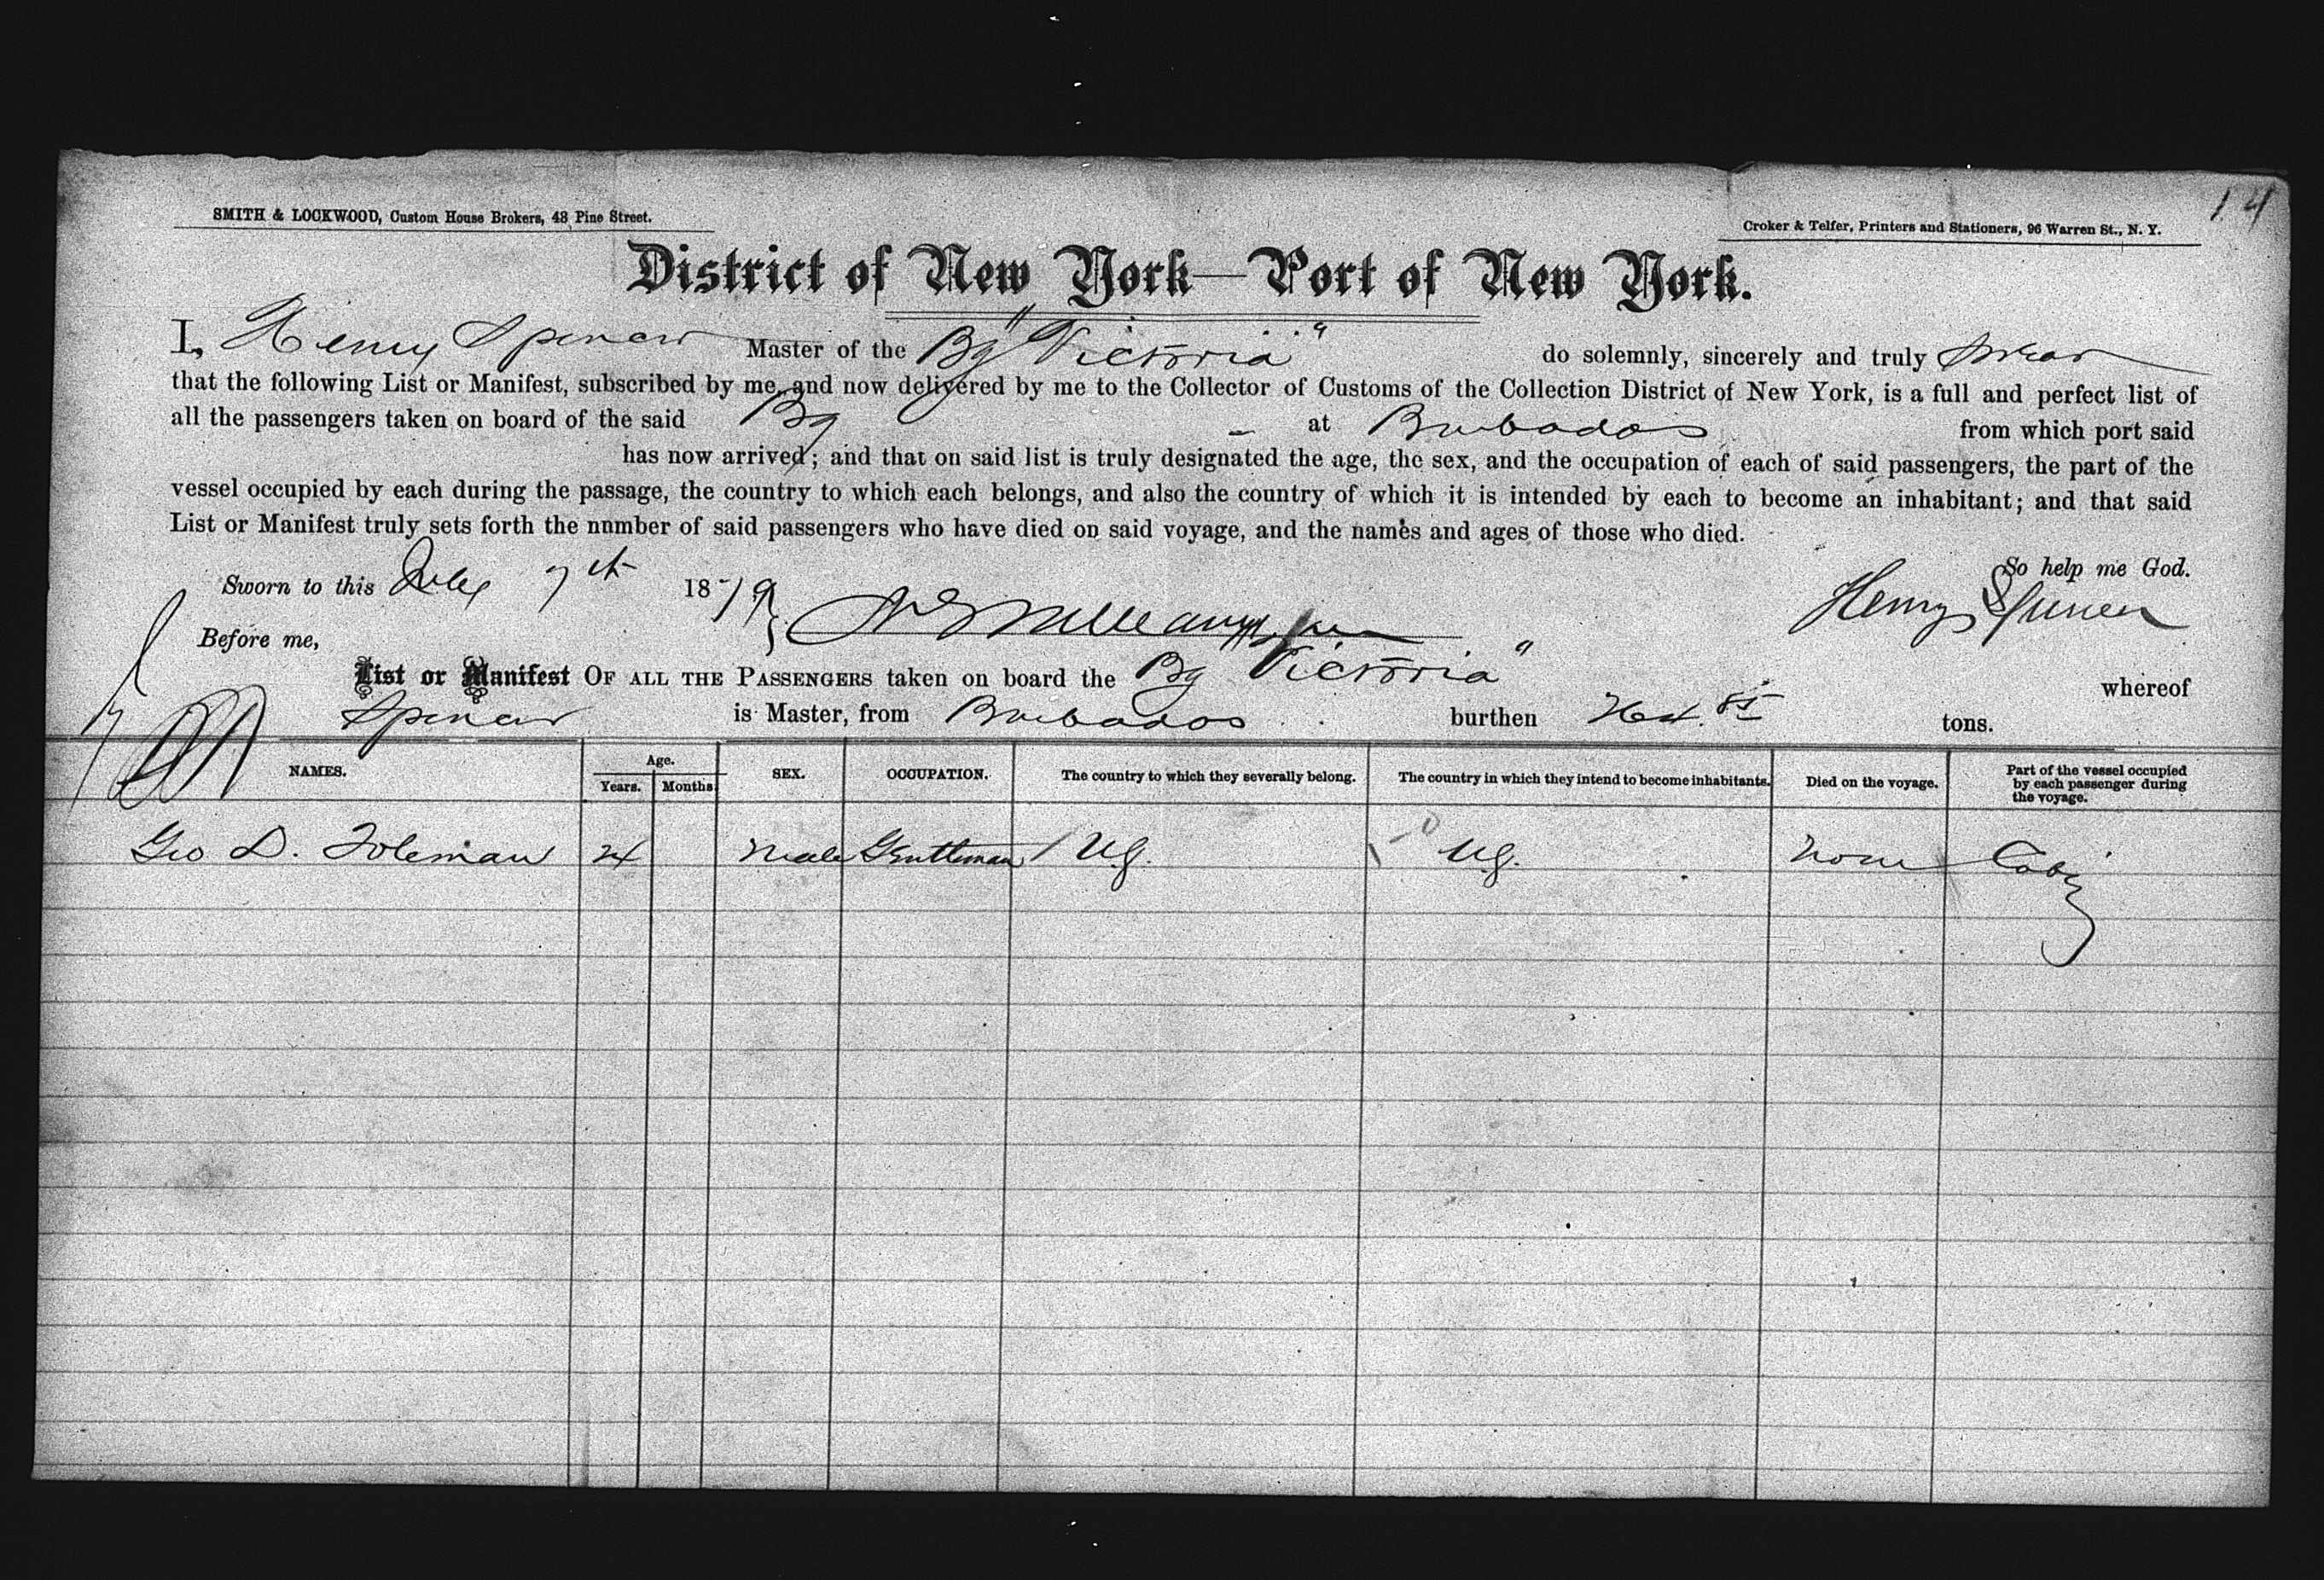 14
SMITH & LOCKWOOD, Custom House Brokers, 48 Pine Street.
Croker & Telfer, Printers and Stationers, 96 Warren St., N. Y.
District of New York—Port of New York.
I, Henry Spencer Master of the Bg "Victoria" do solemnly, sincerely and truly swear
that the following List or Manifest, subscribed by me, and now delivered by me to the Collector of Customs of the Collection District of New York, is a full and perfect list of
all the passengers taken on board of the said Bg at Barbados from which port said
has now arrived; and that on said list is truly designated the age, the sex, and the occupation of each of said passengers, the part of the
vessel occupied by each during the passage, the country to which each belongs, and also the country of which it is intended by each to become an inhabitant; and that said
List or Manifest truly sets forth the nnmber of said passengers who have died on said voyage, and the names and ages of those who died.
So help me God.
Sworn to this July 7th 1879 Henry Spencer
Before me,
List or Manifest OF ALL THE PASSENGERS taken on board the Bg Victoria" whereof
Spencer is Master, from Barbados burthen tons.
NAMES. Age. Years. Months SEX. OCCUPATION. The country to which they severally belong. The country in which they intend to become inhabitants. Died on the voyage. Part of the vessel occupied by each passenger during the voyage.
Geo D. 24 Male Gentleman U.S. U.S. None Cabin